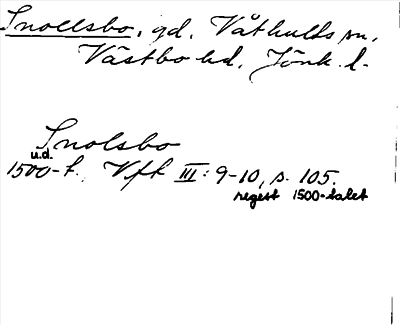 Snollsbo, gd, Våthults sn,
Västbo hd, Jönk. l.
Snolsbo
u.d.
1500-t., Vft III: 9-10, s. 105.
regest 1500-talet